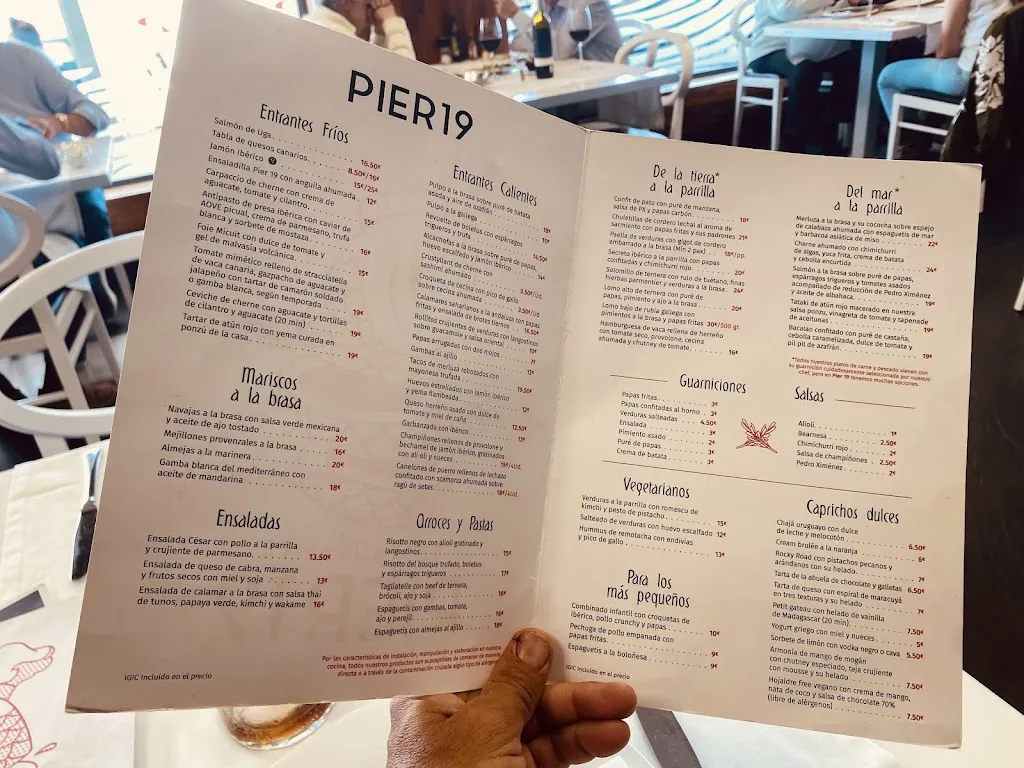 PIER19
Entrantes Fríos
Salmón de Uga. 16.50€
Tabla de quesos canarios. 8.50€/16€
Jamón Ibérico 15€/25€
Ensaladilla Pier 19 con anguila ahumada. 12€
Carpaccio de cherne con crema de
aguacate, tomate y cilantro. 15€
Antipasto de presa ibérica con caviar de
AOVE picual, crema de parmesano, trufa
blanca y sorbete de mostaza 16€
Foie Micuit con dulce de tomate y
gel de malvasía volcánica. 15€
Tomate mimético relleno de stracciatella
de vaca canaria, gazpacho de aguacate y
jalapeño con tartar de camarón soldado
o gamba blanca, según temporada 19€
Ceviche de cherne con aguacate y tortillas
de cilantro y aguacate (20 min) 19€
Tartar de atún rojo con yema curada en
ponzú de la casa. 19€
Mariscos
a la brasa
Navajas a la brasa con salsa verde mexicana
y aceite de ajo tostado 20€
Mejillones provenzales a la brasa 16€
Almejas a la marinera 20€
Gamba blanca del mediterráneo con
aceite de mandarina 18€
Ensaladas
Ensalada César con pollo a la parrilla
y crujiente de parmesano. 13.50€
Ensalada de queso de cabra, manzana
y frutos secos con miel y soja 13€
Ensalada de calamar a la brasa con salsa thai
de tunos, papaya verde, kimchi y wakame 16€
IGIC Incluido en el precio
Entrantes Calientes
Pulpo a la brasa sobre puré de batata
asada y aire de azafrán 18€
Pulpo a la gallega 15€
Revuelto de boletus con espárragos
trigueros y trufa 14.50€
Alcachofas a la brasa sobre puré de papas,
huevo escalfado y jamón ibérico 14€
Crustyllant de cherne con
sashimi ahumado 3.50€/Ud.
Croqueta de cecina con pico de gallo
sobre cecina ahumada 3.50€/Ud
Calamares sahariana a la andaluza con papas
fritas y ensalada de brotes tiernos 16.50€
Rollitos crujientes de verduras con langostinos
sobre guacamole y salsa oriental 10€
Papas arrugadas con dos mojos 7€
Gambas al ajillo 12€
Tacos de merluza rebozados con
mayonesa trufada 19.50€
Huevos estrellados con jamón ibérico
y yema flambeada 12€
Queso herreño asado con dulce de
tomate y miel de caña 12.50€
Garbanzada con ibérico 12€
Champiñones rellenos de provolone y
bechamel de jamón ibérico, gratinados
con ali oli y nueces 15€/4Ud.
Canelones de puerro rellenos de lechazo
confitado con scamorza ahumada sobre
ragú de setas. 18€/4Ud.
Arroces y Pastas
Risotto negro con alioli gratinado y
langostinos. 15€
Risotto del bosque trufado, boletus
y espárragos trigueros 17€
Tagliatelle con beef de ternera,
brócoli, ajo y soja 16€
Espaguetis con gambas, tomate,
ajo y perejil. 16€
Espaguetis con almejas al ajillo 18€
Por las características de instalación, manipulación y elaboración en nuestra
cocina, todos nuestros productos son susceptibles de contener de manera
directa o a través de la contaminación cruzada algún tipo de alérgeno
De la tierra*
a la parrilla
Confit de pato con puré de manzana,
salsa de PX y papas carbón. 18€
Chuletillas de cordero lechal al aroma de
sarmiento con papas fritas y sus padrones 21€
Paella de verduras con gigot de cordero
embarrado a la brasa (Min 2 pax) 18€/pp.
Secreto ibérico a la parrilla con papas
confitadas y chimichurri rojo. 20€
Solomillo de ternera con rulo de tuétano, finas
hierbas permentier y verduras a la brasa 24€
Lomo alto de ternera con puré de
papas, pimiento y ajo a la brasa 20€
Lomo bajo de rubia gallega con
pimientos a la brasa y papas fritas 30€/500 gr.
Hamburguesa de vaca rellena de herreño
con tomate seco, provolone, cecina
ahumada y chutney de tomate 16€
Del mar*
a la parrilla
Merluza a la brasa y su cococha sobre espejo
de calabaza ahumada con espaguetis de mar
y barbacoa asiática de miso 22€
Cherne ahumado con chimichurri
de algas, yuca frita, crema de batata
y cebolla encurtida 24€
Salmón a la brasa sobre puré de papas,
espárragos trigueros y tomates asados
acompañado de reducción de Pedro Ximénez
y aceite de albahaca. 19€
Tataki de atún rojo macerado en nuestra
salsa ponzu, vinagreta de tomate y tapenade
de aceitunas 19€
Bacalao confitado con puré de castaña,
cebolla caramelizada, dulce de tomate y
pil pil de azafrán. 19€
*Todos nuestros platos de carne y pescado vienen con
su guarnición cuidadosamente seleccionada por nuestro
chef, pero en Pier 19 tenemos muchas opciones.
Guarniciones
Papas fritas. 3€
Papas confitadas al horno 3€
Verduras salteadas 4.50€
Ensalada 3€
Pimiento asado 2€
Puré de papas 3€
Crema de batata 3€
Salsas
Alioli. 1€
Bearnesa 2.50€
Chimichurri rojo 2€
Salsa de champiñones 2.50€
Pedro Ximénez 2€
Vegetarianos
Verduras a la parrilla con romescu de
kimchi y pesto de pistacho 15€
Salteado de verduras con huevo escalfado 12€
Hummus de remolacha con endivias
y pico de gallo 13€
Para los
más pequeños
Combinado infantil con croquetas de
ibérico, pollo crunchy y papas 10€
Pechuga de pollo empanada con
papas fritas. 9€
Espaguetis a la boloñesa 9€
IGIC Incluido en el precio
Caprichos dulces
Chajá uruguayo con dulce
de leche y melocotón 6.50€
Cream brulée a la naranja 6€
Rocky Road con pistachos pecanos y
arándanos con su helado 7€
Tarta de la abuela de chocolate y galletas 6.50€
Tarta de queso con espiral de maracuyá
en tres texturas y su helado 7€
Petit gateau con helado de vainilla
de Madagascar (20 min). 7.50€
Yogurt griego con miel y nueces 5€
Sorbete de limón con vodka negro o cava 5.50€
Armonía de mango de mogán
con chutney especiado, teja crujiente
con mousse y su helado 7.50€
Hojaldre free vegano con crema de mango,
nata de coco y salsa de chocolate 70%
(libre de alérgenos) 7.50€